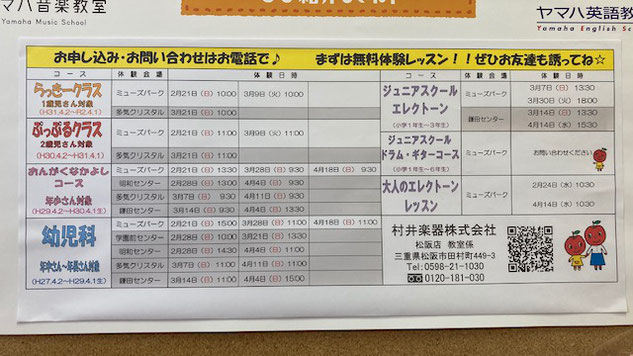 マハ音楽教室
Yamaha Music School
ヤマハ英語教
Yamaha English Sc
お申し込み・お問い合わせはお電話で♪ まずは無料体験レッスン!!ぜひお友達も誘ってね☆
コース 体験会場 体験日時
らっきークラス
1歳児さん対象
(H31.4.2~R2.4.1)
ミューズパーク 2月21日(日) 10:00 3月9日(火) 10:00
多気クリスタル 2月21日(日) 10:00
ぷっぷるクラス
2歳児さん対象
(H30.4.2~H31.4.1)
ミューズパーク 2月21日(日) 11:00 3月9日(火) 11:00
多気クリスタル 3月21日(日) 11:00
おんがくなかよし
コース
年少さん対象
(H29.4.2~H30.4.1)
ミューズパーク 2月21日(日) 13:30 3月28日(日) 9:30 4月18日(日) 9:30
明和センター 2月28日(日) 13:00 4月4日(日) 9:30
多気クリスタル 3月7日(日) 9:30 4月11日(日) 9:30
鎌田センター 3月14日(日) 9:30 4月4日(日) 13:30
幼児科
年中さん~年長さん対象
(H27.4.2~H29.4.1)
ミューズパーク 2月21日(日) 15:00 3月28日(日) 11:00 4月18日(日) 11:00
学園前センター 2月28日(日) 10:00 3月21日(日) 13:30
明和センター 2月28日(日) 14:30 4月4日(日) 11:00
多気クリスタル 3月7日(日) 11:00 4月11日(日) 11:00
鎌田センター 3月14日(日) 11:00 4月4日(日) 15:00
コース 体験会場 体験日時
ジュニアスクール
エレクトーン
(小学1年生~3年生)
ミューズパーク 3月7日(日) 13:30
3月30日(火) 18:00
鎌田センター 3月14日(日) 13:30
4月14日(水) 15:30
ジュニアスクール
ドラム・ギターコース
(小学1年生~6年生)
ミューズパーク お問い合わせください
大人のエレクトーン
レッスン
ミューズパーク 2月24日(水) 10:30
4月14日(水) 10:30
村井楽器株式会社
松阪店 教室係
三重県松阪市田村町449-3
Tel:0598-21-1030
0120-181-030